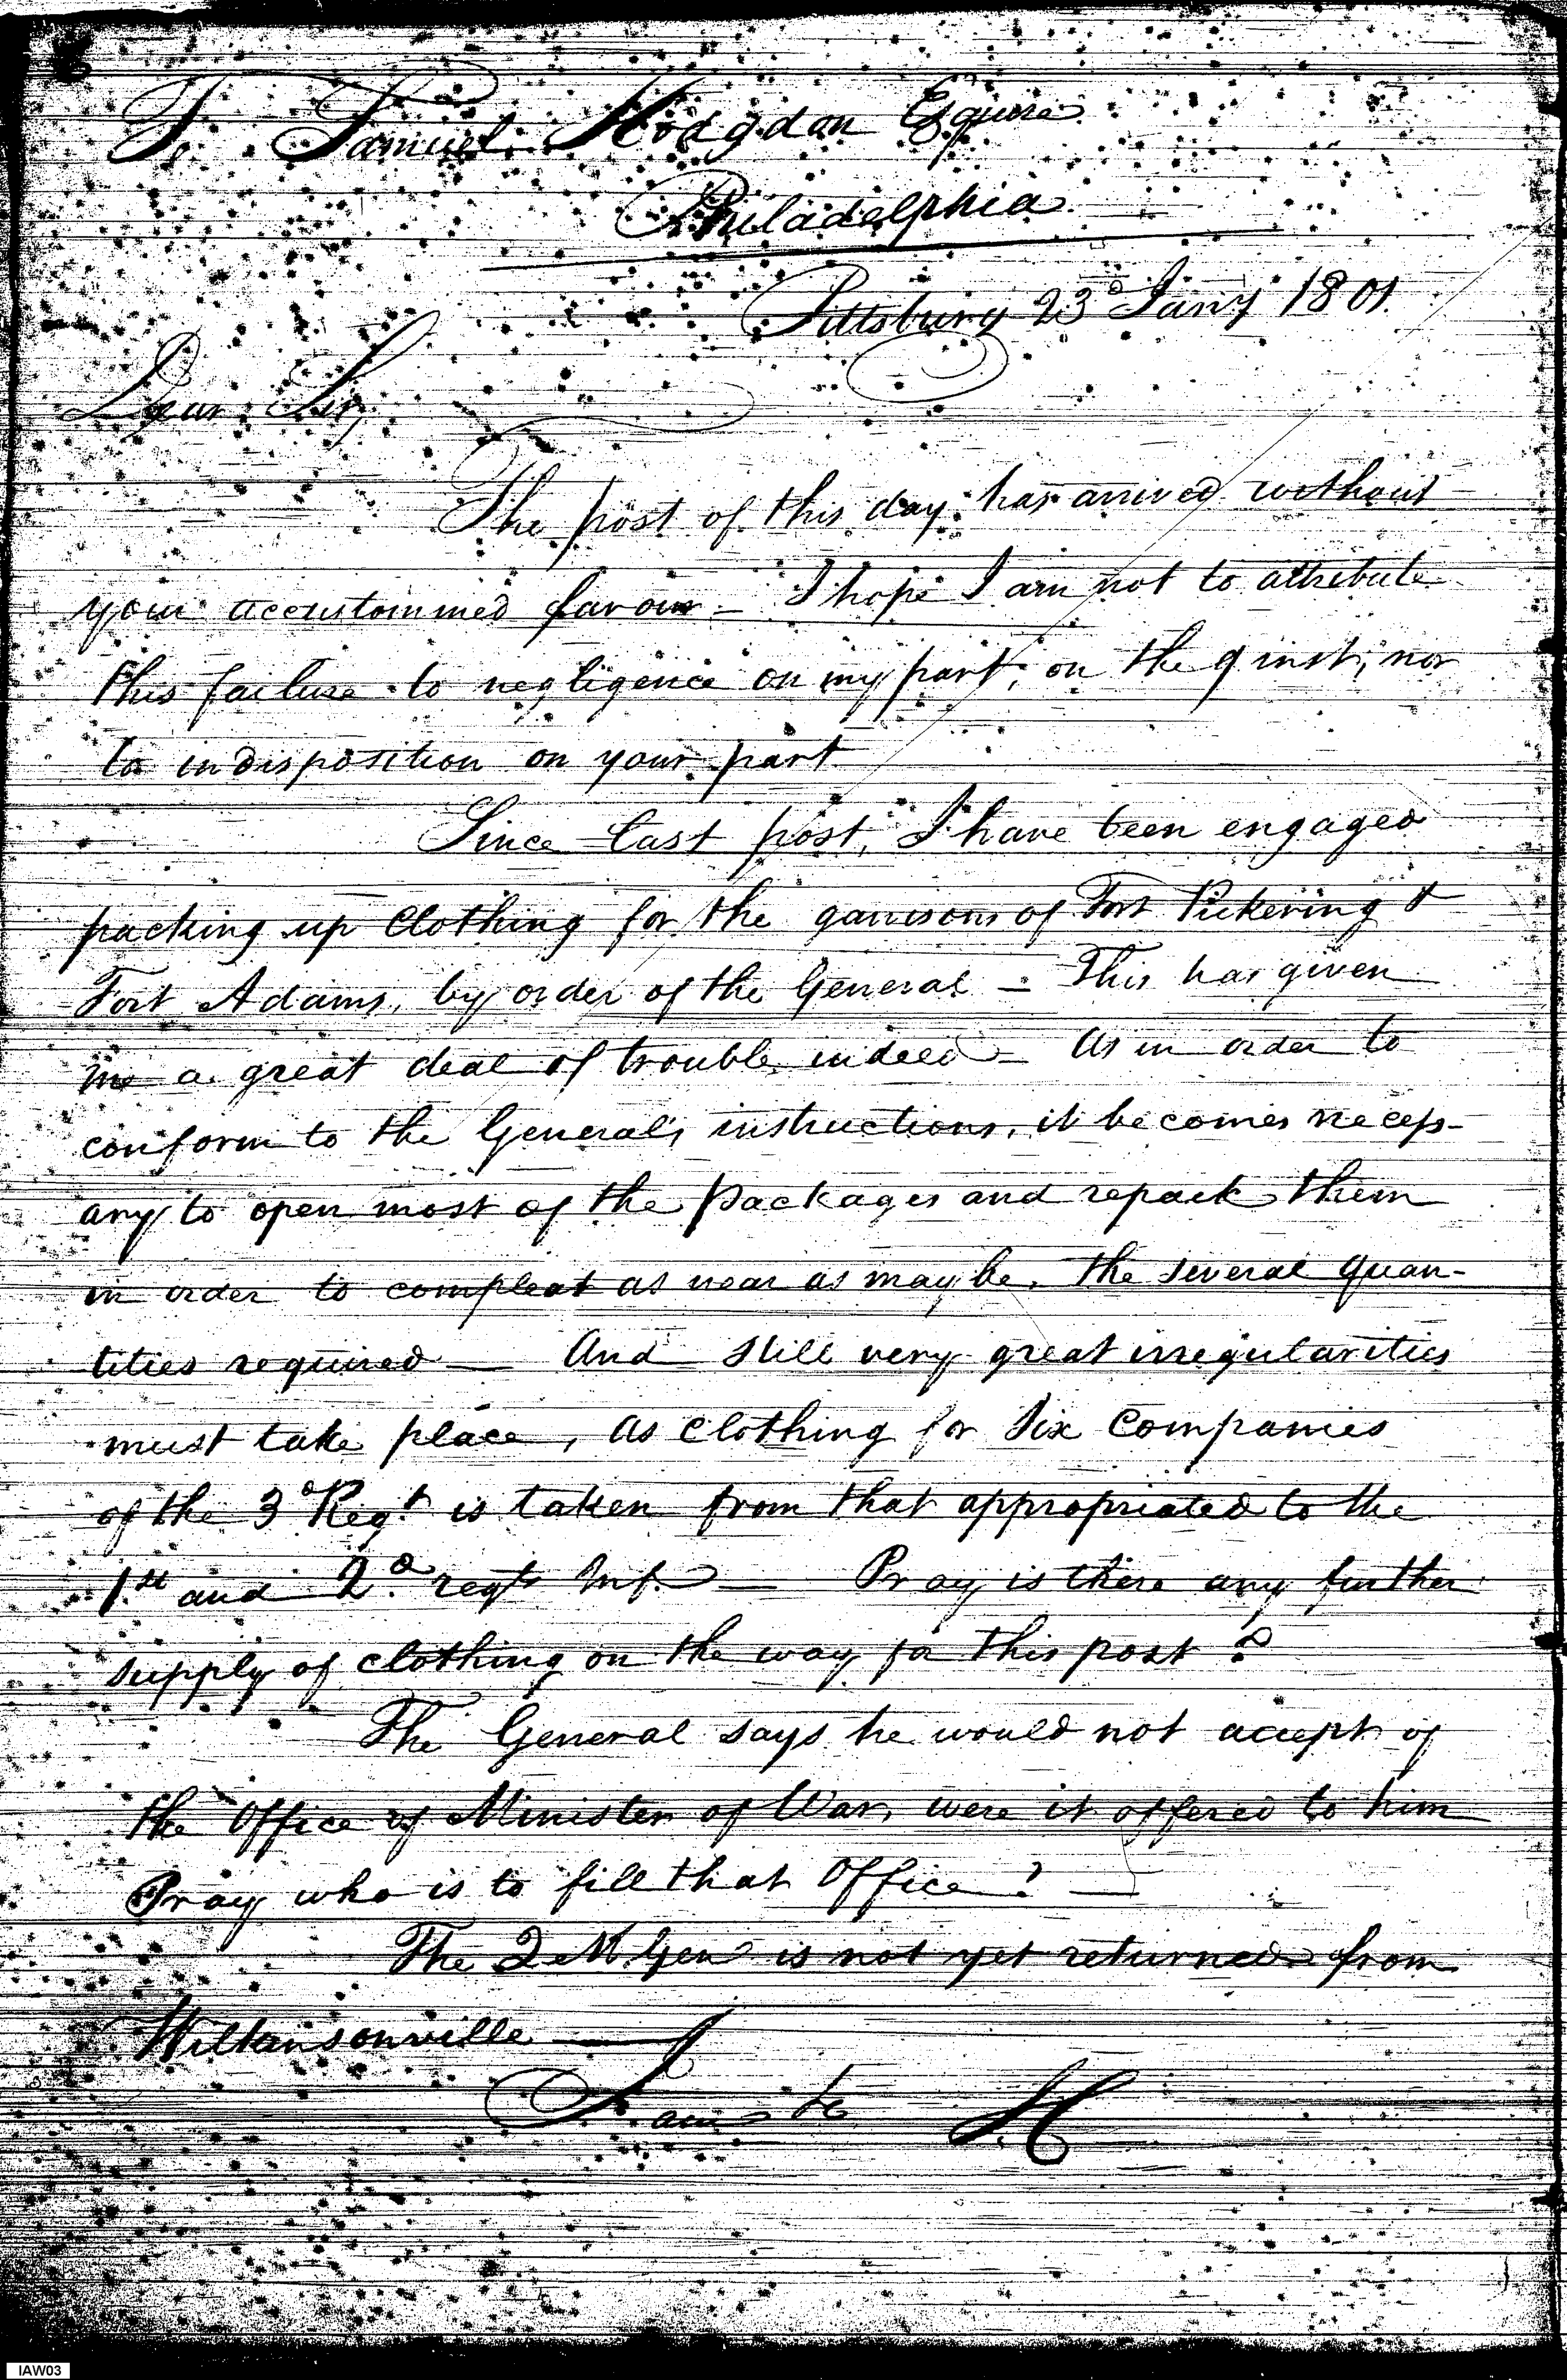 To Samuel Hodgdon Esquire
Philadelphia
Pittsburg 23d Jany 1801.
Dear Sir,
The post of this day has arrived without
your accustommed favour - I hope I am not to attribute
this failure to negligence on my part, on the 9 inst; nor
to indisposition on your part
Since last post, I have been engaged
packing up Clothing for the garrisons of Fort Pickering &
Fort Adams, by order of the General - This has given
me a great deal of trouble indeed - As in order to
conform to the General's instructions, it becomes necess-
ary to open most of the packages and repack them
in order to compleat as near as may be, the several quan-
tities required - And still very great irregularities
must take place, as clothing for Six Companies
of the 3d Regt is taken from that appropriated to the
1st and 2d regts Inf. - Pray is there any further
supply of clothing on the way for this post?
The General says he would not accept of
the Office of Minister of War, were it offered to him
Pray who is to fill that Office? -
The Q M Gen is not yet returned from
Wilkinsonville -
I am &c
IAW03